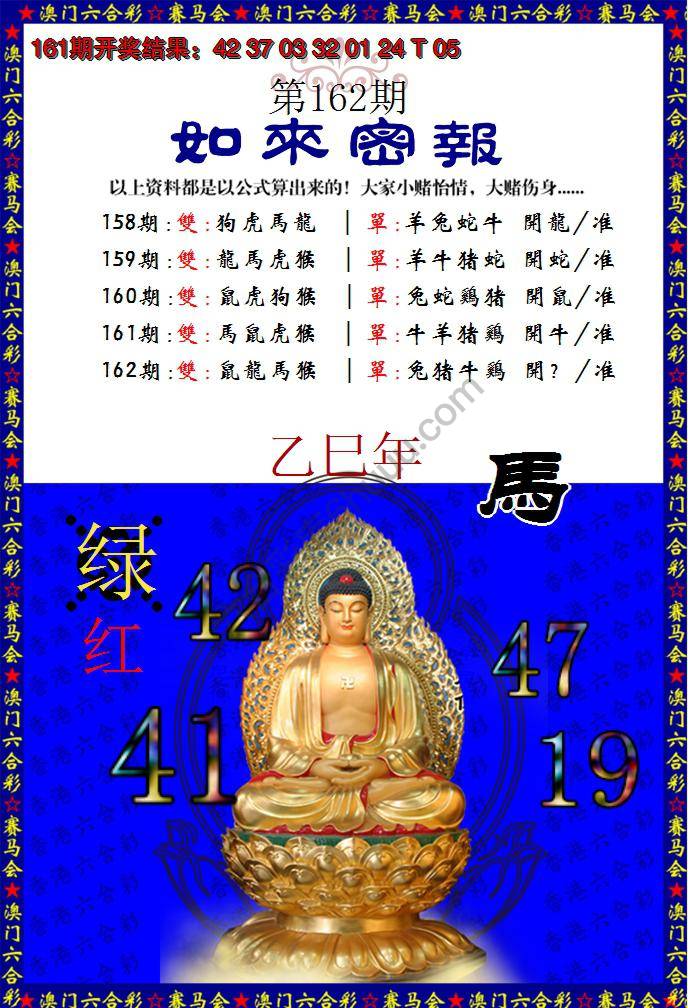 ★澳门六合彩☆赛马会★澳门六合彩☆赛马会★澳门六合彩☆赛马会★
161期开奖结果：42 37 03 32 01 24 T 05
第162期
如來密報
以上资料都是以公式算出来的！大家小赌怡情，大赌伤身......
158期:雙:狗虎馬龍 |單:羊兔蛇牛 開龍/准
159期:雙:龍馬虎猴 |單:羊牛猪蛇 開蛇/准
160期:雙:鼠虎狗猴 |單:兔蛇鷄猪 開鼠/准
161期:雙:馬鼠虎猴 |單:牛羊猪鷄 開牛/准
162期:雙:鼠龍馬猴 |單:兔猪牛鷄 開？/准
乙巳年
馬
绿
红
42
47
41
19
香港六合彩
★澳门六合彩☆赛马会★澳门六合彩☆赛马会★澳门六合彩☆赛马会★